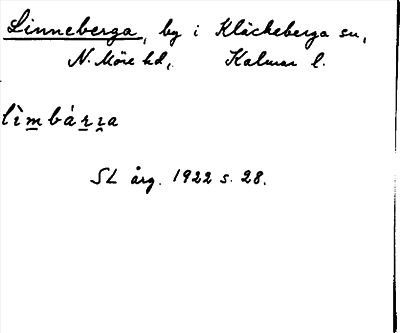 Linneberga, by i Kläckeberga sn,
N. Möre hd, Kalmar l.
lìm̲bár̲ɪ̲a
SL årg. 1922 s. 28.